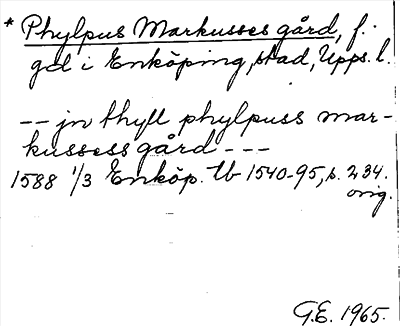 * Phylpus Markusses gård, f.
gd i Enköping, stad, Upps. l.
-- jn thyll phylpuss mar-
kussess gård ---
1588 1/3 Enköp. tb 1540-95, s. 234.
orig.
G.E. 1965.